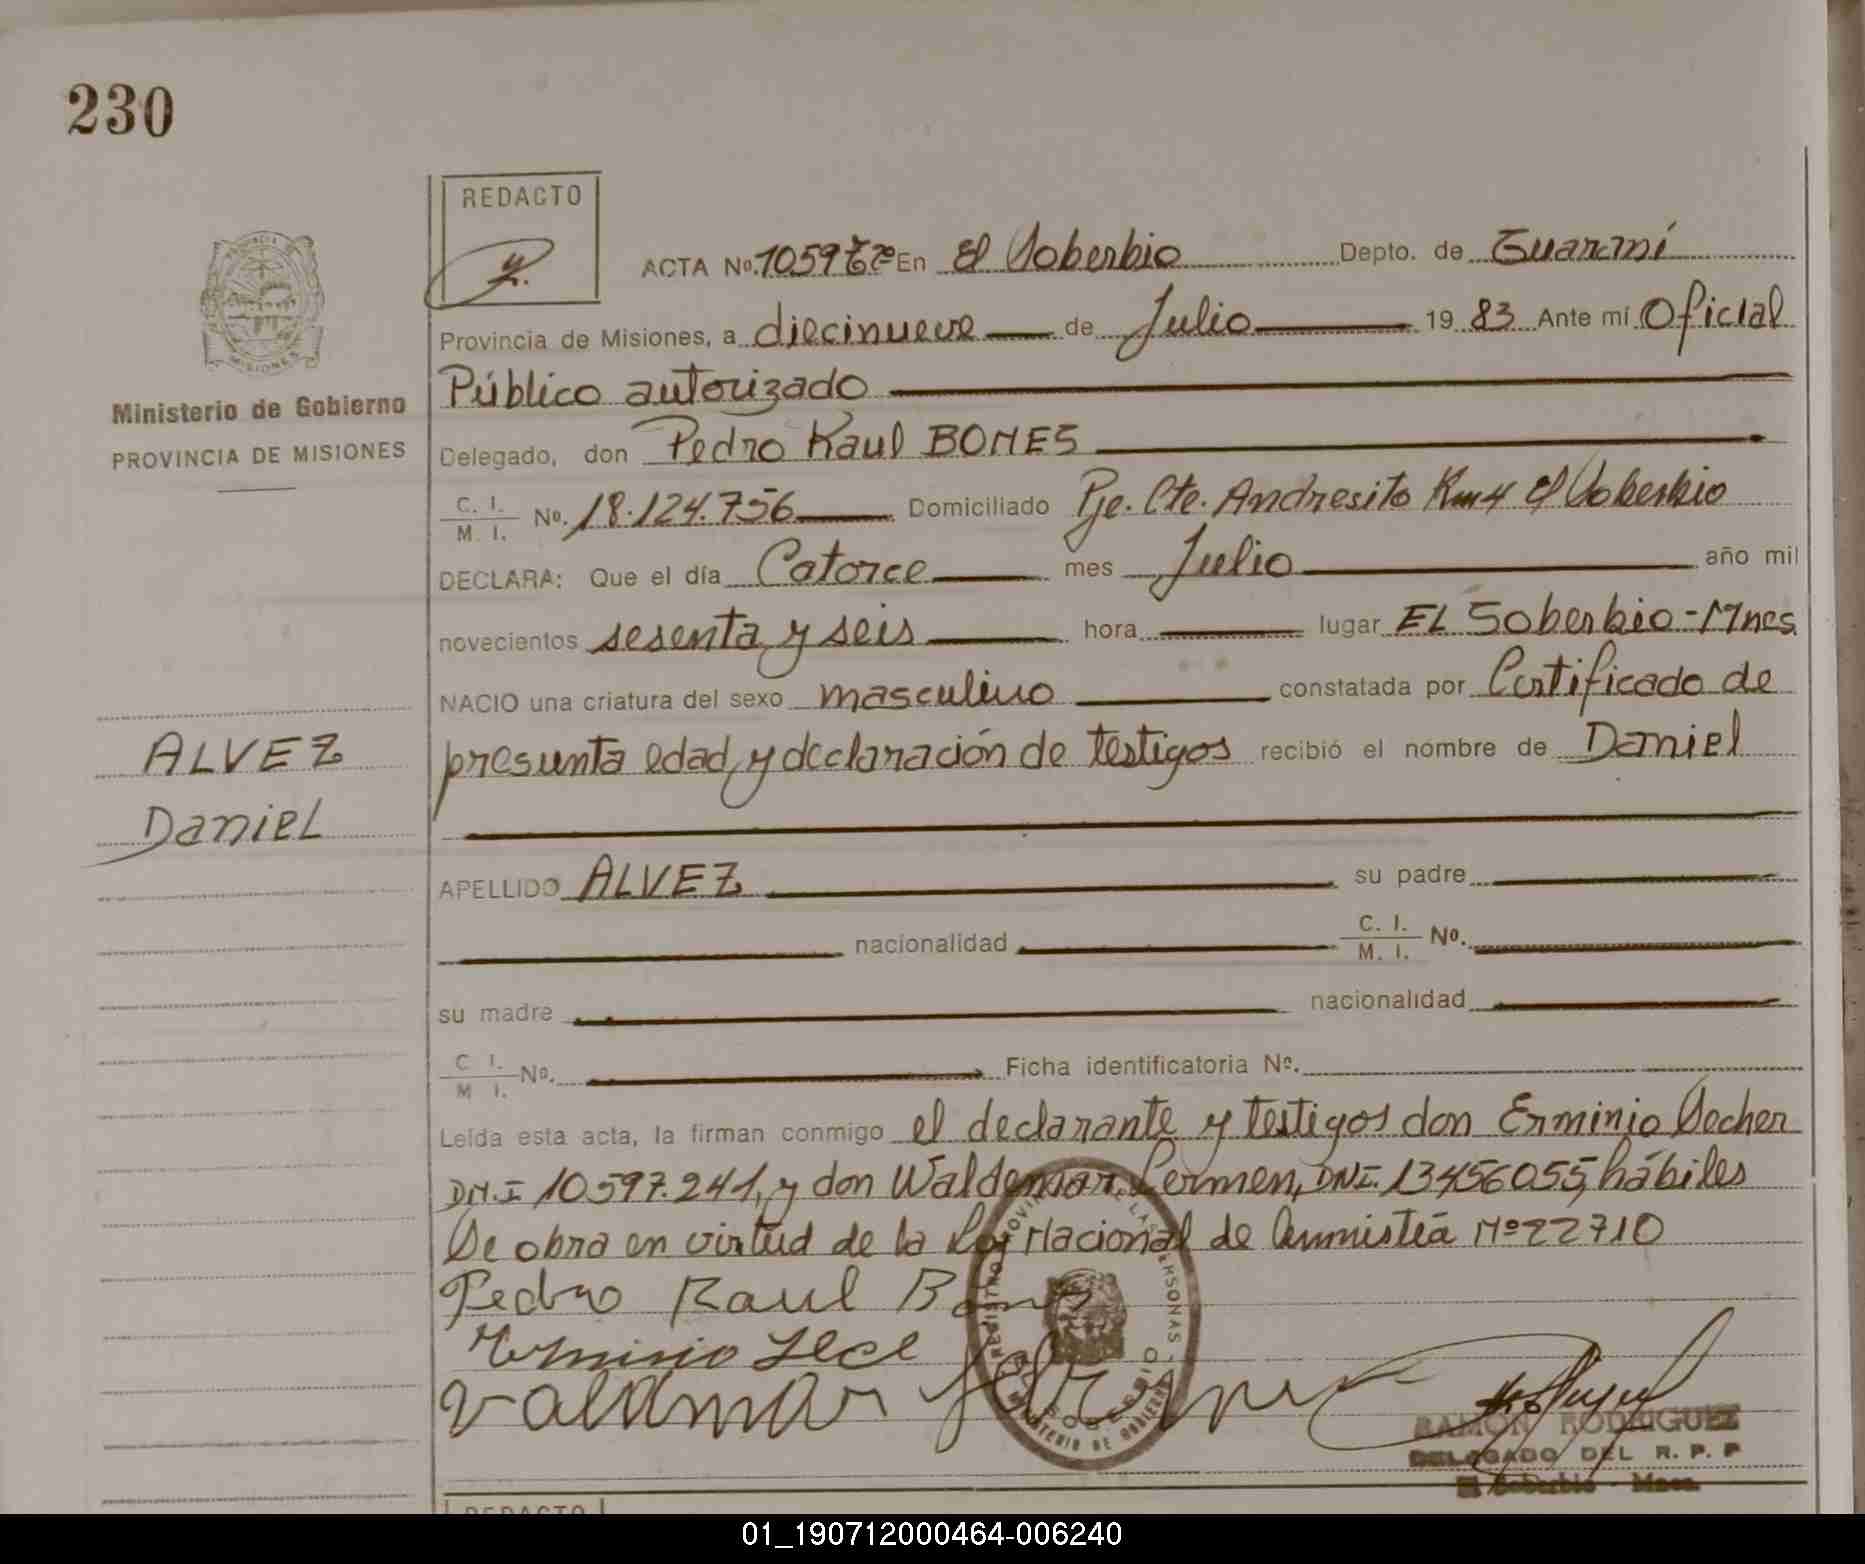 230
REDACTO
ACTA Nº. 1059 En El Soberbio Depto. de Guaraní
Provincia de Misiones, a diecinueve de Julio 19 83 Ante mí Oficial
Público autorizado
Delegado, don Pedro Raul BONES
Ministerio de Gobierno
PROVINCIA DE MISIONES
C. I.
M. I. Nº. 18.124.756 Domiciliado Pje. Cte. Andresito Km 4 El Soberbio
DECLARA: Que el día Catorce mes Julio año mil
novecientos sesenta y seis hora lugar EL Soberbio - Mnes
NACIO una criatura del sexo masculino constatada por Certificado de
presunta edad, y declaración de testigos recibió el nombre de Daniel
ALVEZ
Daniel
APELLIDO ALVEZ su padre
nacionalidad C. I.
M. I. Nº.
su madre nacionalidad
C. I.
M. I. Nº. Ficha identificatoria Nº.
Leída esta acta, la firman conmigo el declarante y testigos don Erminio Secher
DN.I 10.597.241, y don Waldemar Lermen, DNI. 13456055, hábiles
Se obra en virtud de la Ley Nacional de Amnistía Nº 22710
Pedro Raul Bones
RAMON RODRIGUEZ
DELEGADO DEL R. P. P
El Soberbio - Mnes.
REDACTO
01_190712000464-006240